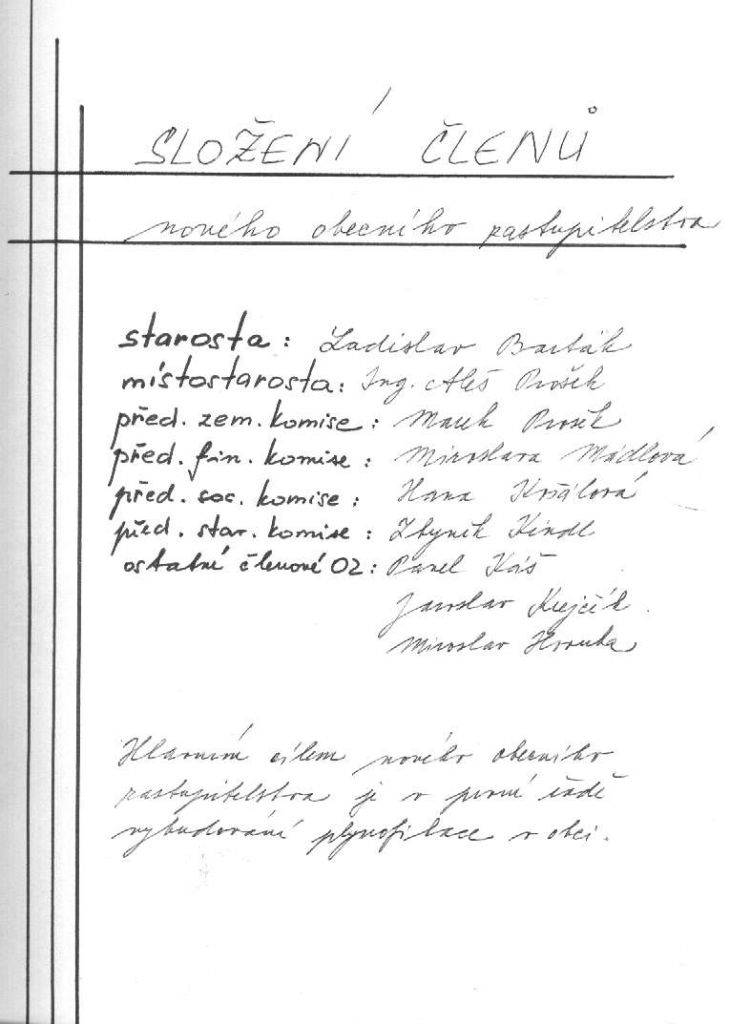 SLOŽENÍ ČLENŮ
nového obecního zastupitelstva
starosta: Ladislav Barták
místostarosta: Ing. Aleš Prošek
před. zem. komise: Marek Prošek
před. fin. komise: Miroslava Mádlová
před. soc. komise: Hana
před. stav. komise: Zbyněk Kindl
ostatní členové OZ: Pavel Káš
Jaroslav Krejčík
Miroslav Hovorka
Hlavním cílem nového obecního
zastupitelstva je v první řadě
vybudování plynofikace v obci.